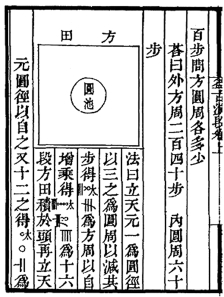 百步問方圓周各多少
荅曰外方周二百四十步　内圓周六十
步
方田
圓池
法曰立天元一為圓徑
以三之為圓周以減共
步得為方周以自
增乘得為十六
段方田積於頭再立天
元圓徑以自之又十二之得為